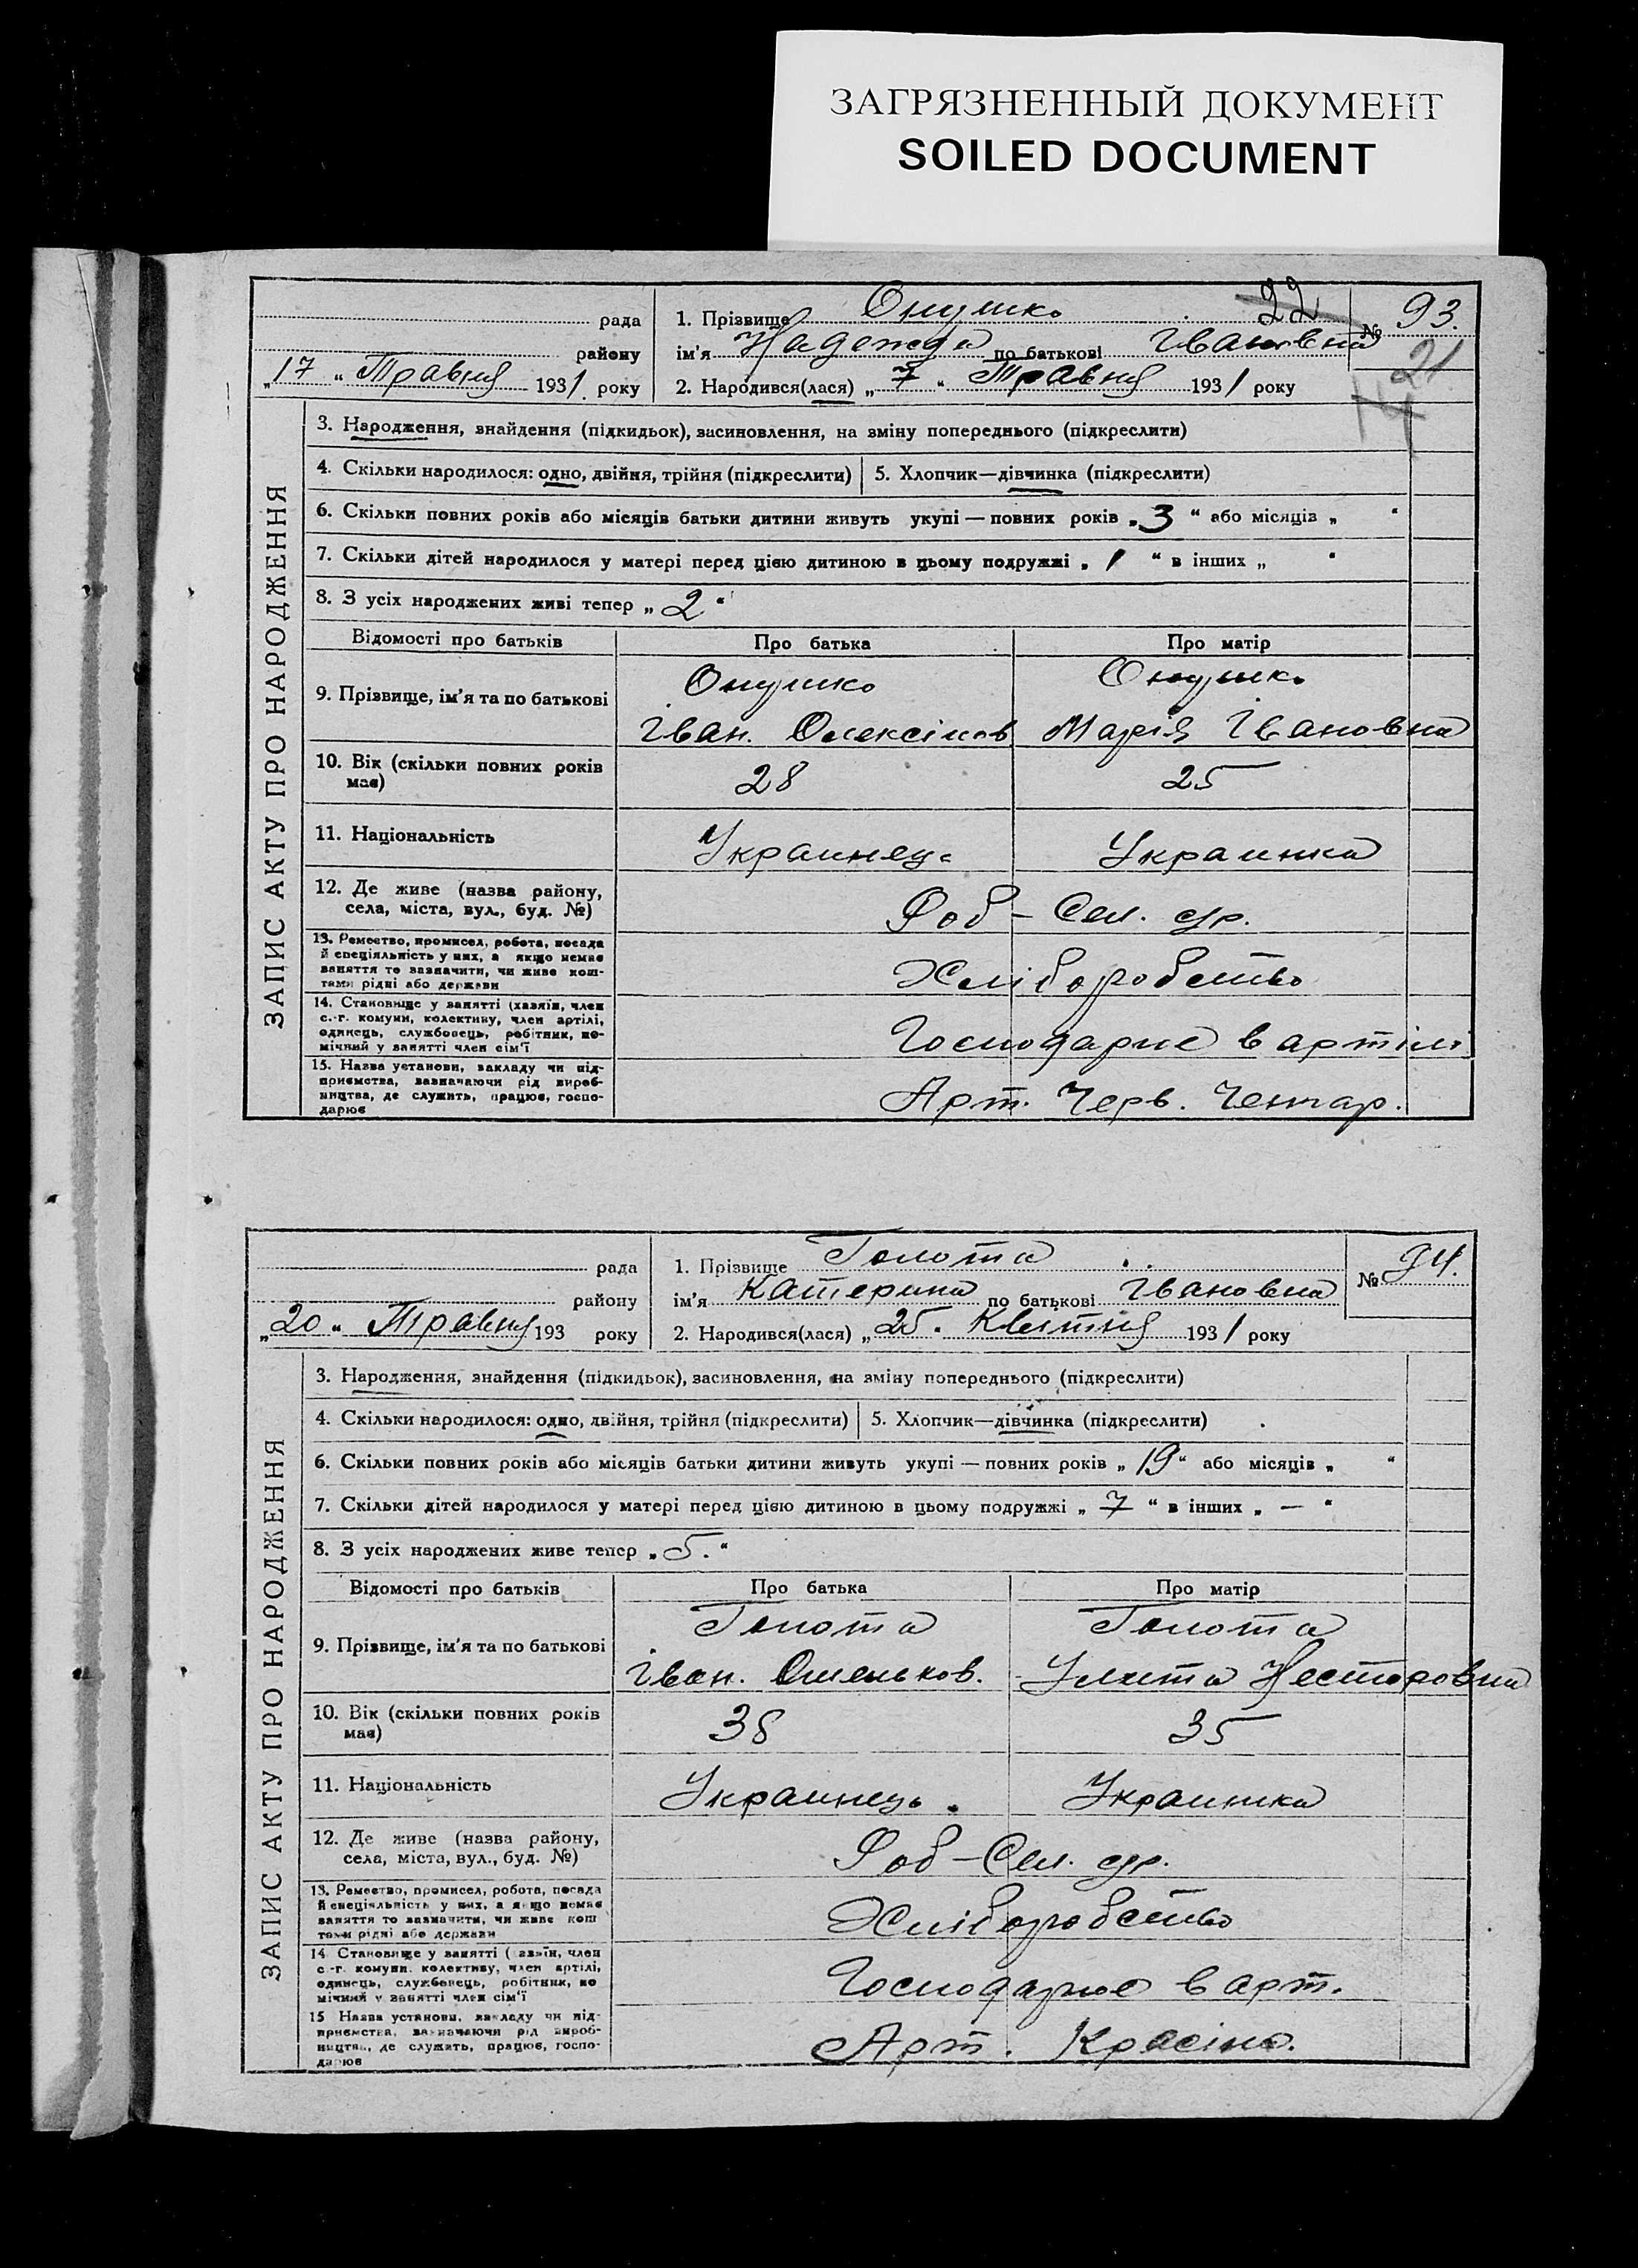 ЗАГРЯЗНЕННЫЙ ДОКУМЕНТ
SOILED DOCUMENT
рада
району
„17" Травня 1931 року
1. Прізвище Онушко 22
ім'я Надежда по батькові Івановна
2. Народився(лася) „7" Травня 1931 року
№ 93.
21
ЗАПИС АКТУ ПРО НАРОДЖЕННЯ
3. Народження, знайдення (підкидьок), засиновлення, на зміну попереднього (підкреслити)
4. Скільки народилося: одно, двійня, трійня (підкреслити) 5. Хлопчик—дівчинка (підкреслити)
6. Скільки повних років або місяців батьки дитини живуть укупі — повних років „3" або місяців „ "
7. Скільки дітей народилося у матері перед цією дитиною в цьому подружжі „1" в інших „ "
8. З усіх народжених живі тепер „2"
Відомості про батьків Про батька Про матір
9. Прізвище, ім'я та по батькові
Онушко Онушко
Іван. Олексійов Марія Івановна
10. Вік (скільки повних років має) 28 25
11. Національність Украинець Украинка
12. Де живе (назва району, села, міста, вул., буд. №) Роб-Сел. ср.
13. Ремество, промисел, робота, посада й спеціяльність у них, а якщо немає заняття то зазначити, чи живе коштами рідні або держави Хліборобство
14. Становище у занятті (хазяїн, член с.-г. комуни, колективу, член артілі, одинець, службовець, робітник, помічний у занятті член сім'ї Господарює в артілі
15. Назва установи, закладу чи підприємства, зазначаючи рід виробництва, де служить, працює, господарює Арт. Черв.
рада
району
„20" Травня 193 року
1. Прізвище Голота
ім'я Катерина по батькові Івановна
2. Народився(лася) „25. Квітня 1931 року
№ 94.
ЗАПИС АКТУ ПРО НАРОДЖЕННЯ
3. Народження, знайдення (підкидьок), засиновлення, на зміну попереднього (підкреслити)
4. Скільки народилося: одно, двійня, трійня (підкреслити) 5. Хлопчик—дівчинка (підкреслити)
6. Скільки повних років або місяців батьки дитини живуть укупі — повних років „19" або місяців „ "
7. Скільки дітей народилося у матері перед цією дитиною в цьому подружжі „7" в інших „—"
8. З усіх народжених живе тепер „5."
Відомості про батьків Про батька Про матір
9. Прізвище, ім'я та по батькові
Голота Голота
Іван. Омельков. Улита Несторовна
10. Вік (скільки повних років має) 38 35
11. Національність Украинець. Украинка
12. Де живе (назва району, села, міста, вул., буд. №) Роб-Сел. ср.
13. Ремество, промисел, робота, посада й спеціяльність у них, а якщо немає заняття то зазначити, чи живе коштами рідні або держави Хліборобство
14 Становище у занятті (хазяїн, член с.-г. комуни, колективу, член артілі, одинець, службовець, робітник, помічний у занятті член сім'ї Господарює в арт.
15 Назва установи, закладу чи підприємства, зазначаючи рід виробництва, де служить, працює, господарює Арт. Красіна.